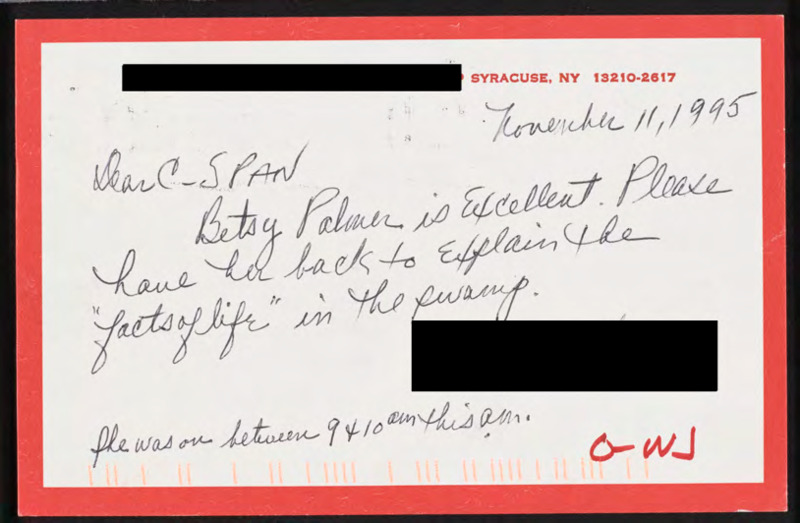 SYRACUSE, NY 13210-2617
November 11, 1995
Dear C-SPAN
Betsy Palmer is Excellent. Please
have her back to Explain the
"facts of life" in the swamp.
She was on between 9 & 10 am this am.
WJ